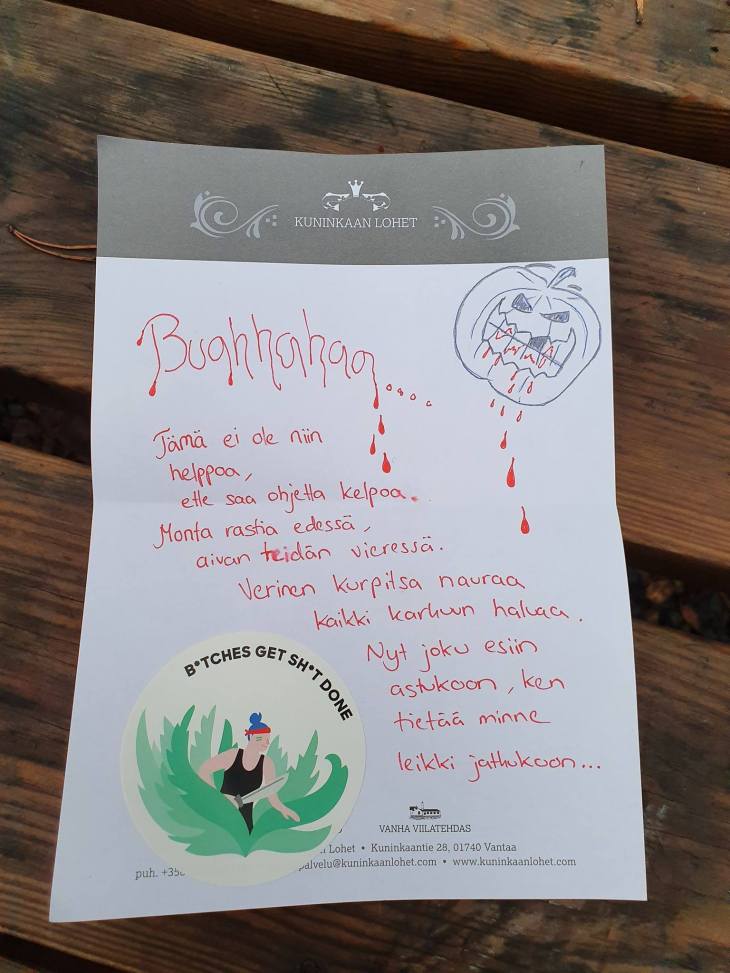 KUNINKAAN LOHET
Buahhahaa....
Tämä ei ole niin
helppoa,
ette saa ohjetta kelpoa.
Monta rastia edessä,
aivan teidän vieressä.
Verinen kurpitsa nauraa
kaikki karkuun haluaa.
Nyt joku esiin
astukoon, ken
tietää minne
leikki jatkukoon...
B*TCHES GET SH*T DONE
VANHA VIILATEHDAS
Lohet • Kuninkaantie 28, 01740 Vantaa
puh. +358 palvelu@kuninkaanlohet.com • www.kuninkaanlohet.com